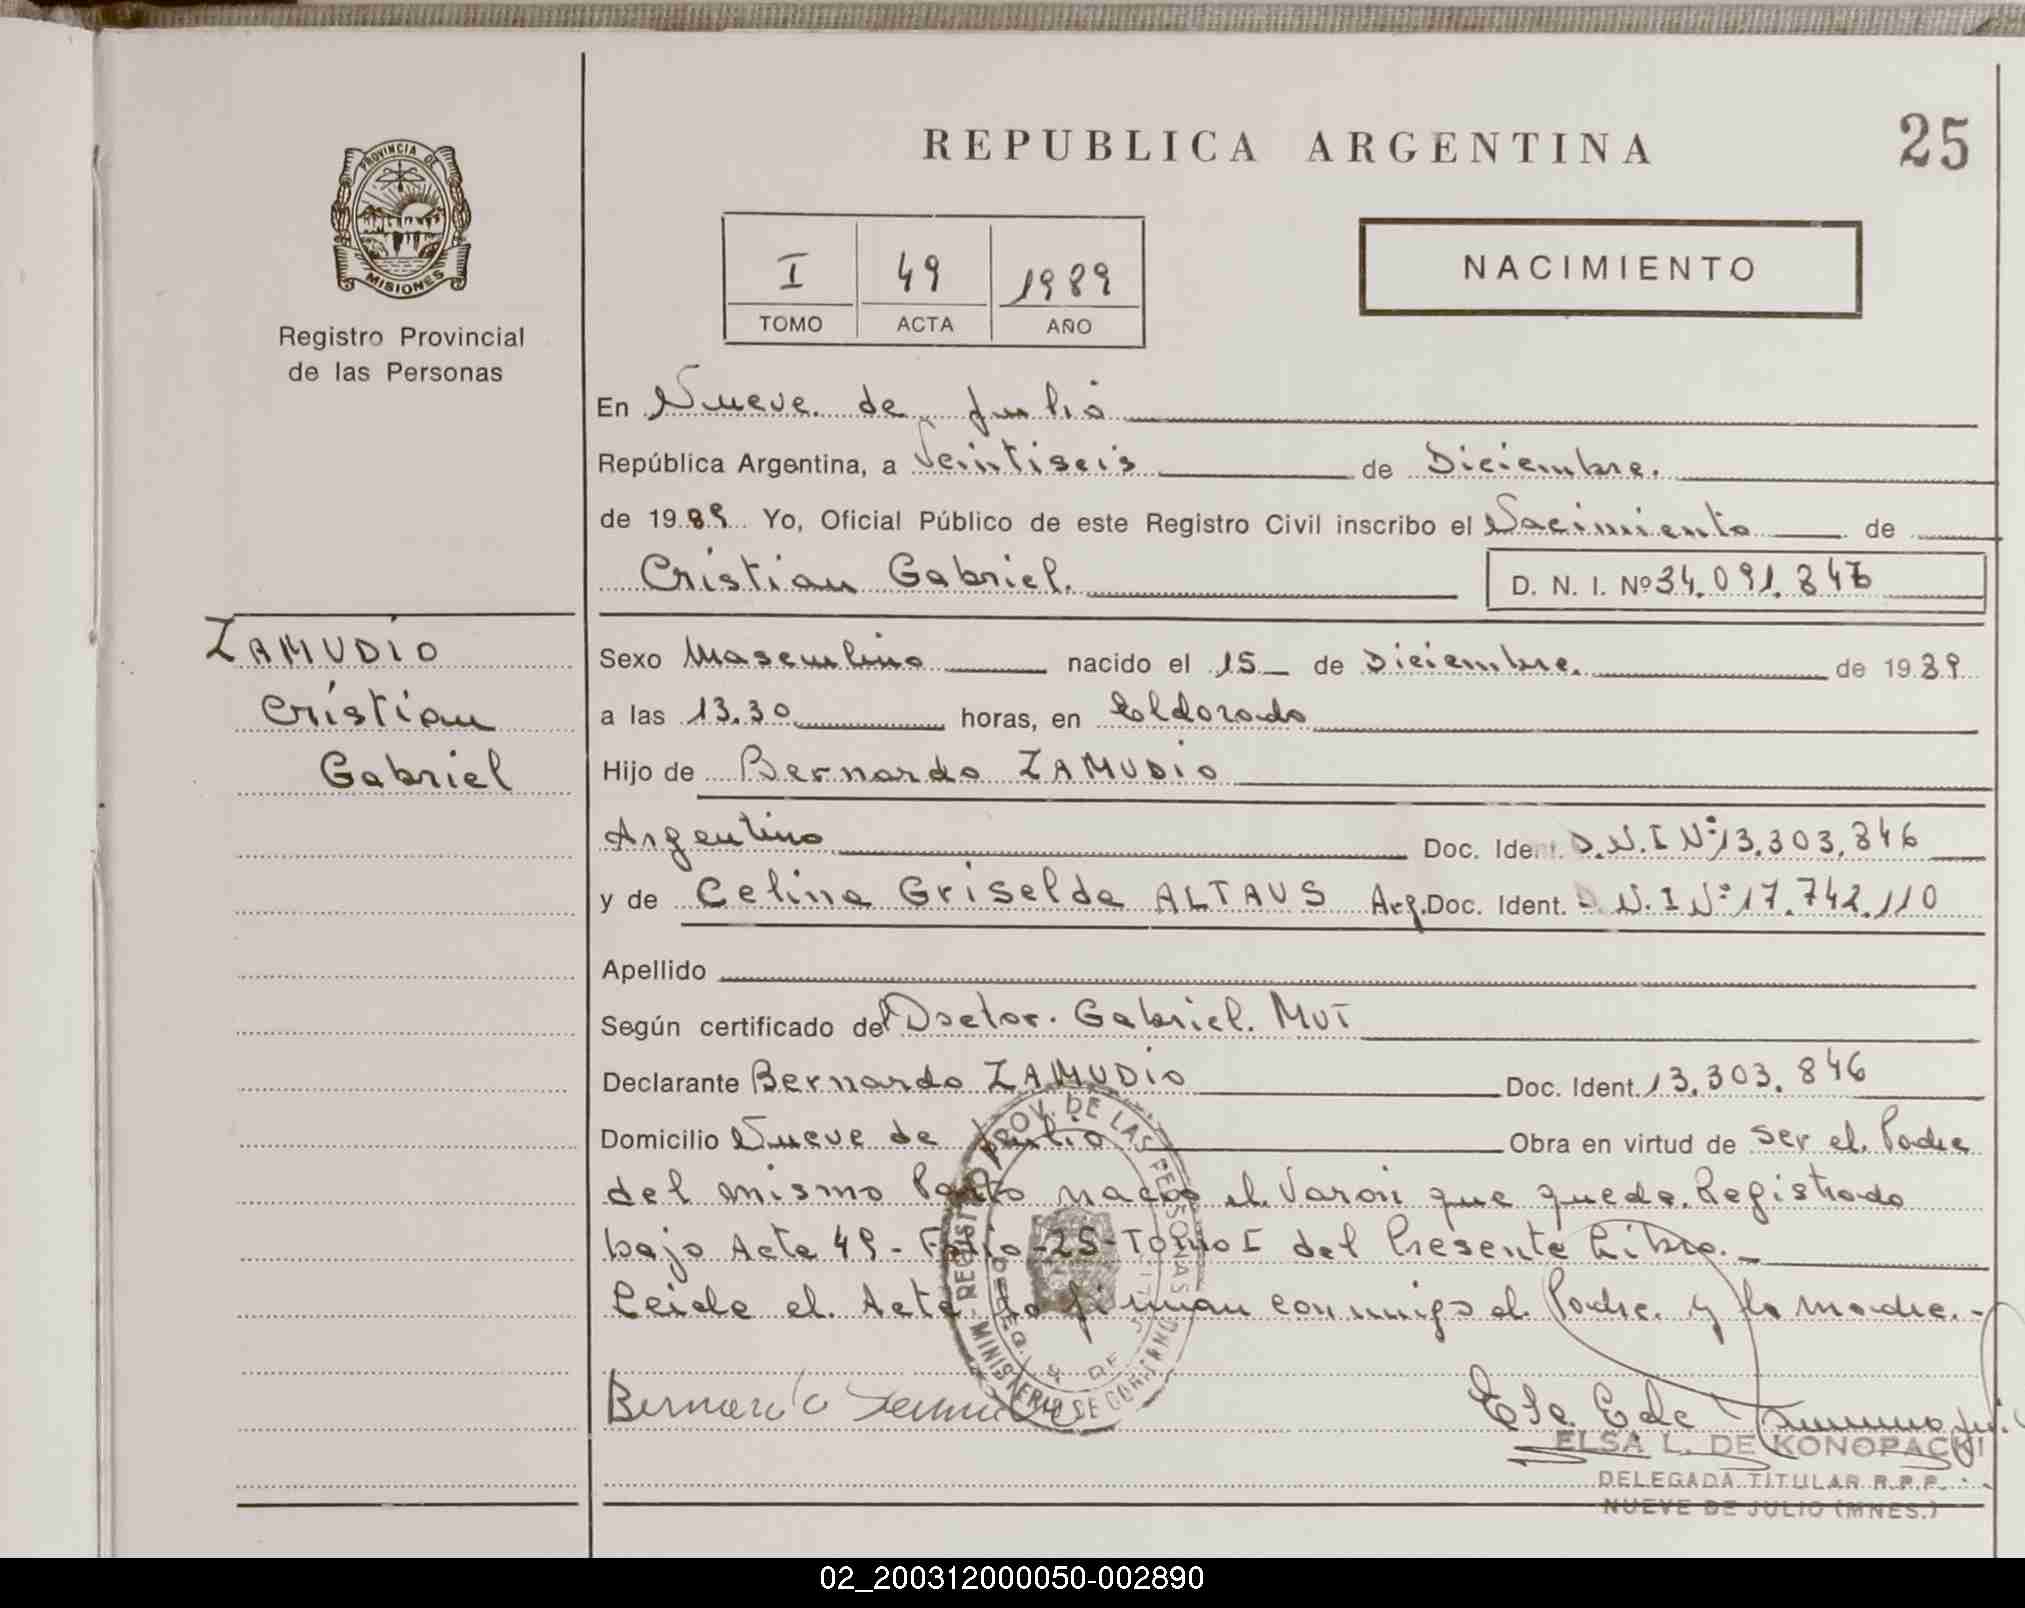 PROVINCIA DE
MISIONES
Registro Provincial
de las Personas
REPUBLICA ARGENTINA
25
I 49 1989
TOMO ACTA AÑO
NACIMIENTO
En Nueve de Julio
República Argentina, a Veintiseis de Diciembre.
de 1989 Yo, Oficial Público de este Registro Civil inscribo el Nacimiento de
Cristian Gabriel.
D. N. I. Nº 34.091.846
ZAMUDIO
Cristian
Gabriel
Sexo Masculino nacido el 15 de Diciembre. de 1989
a las 13.30 horas, en Eldorado
Hijo de Bernardo ZAMUDIO
Argentino Doc. Ident. D.N.I Nº 13.303.846
y de Celina Griselda ALTAUS Arg. Doc. Ident. D.N.I Nº 17.742.110
Apellido
Según certificado del Doctor. Gabriel. MUT
Declarante Bernardo ZAMUDIO Doc. Ident. 13.303.846
Domicilio Nueve de Julio Obra en virtud de ser el Padre
del mismo Parto nacio el Varon que queda Registrado
bajo Acta 49 - Folio - 25 - Tomo I del Presente Libro. -
Leida el Acta la firman conmigo el Padre y la madre. -
REGISTRO PROV. DE LAS PERSONAS
MINISTERIO DE GOBIERNO
Bernardo
ELSA L. DE KONOPACKI
DELEGADA TITULAR R.P.P.
NUEVE DE JULIO (MNES.)
02_200312000050-002890